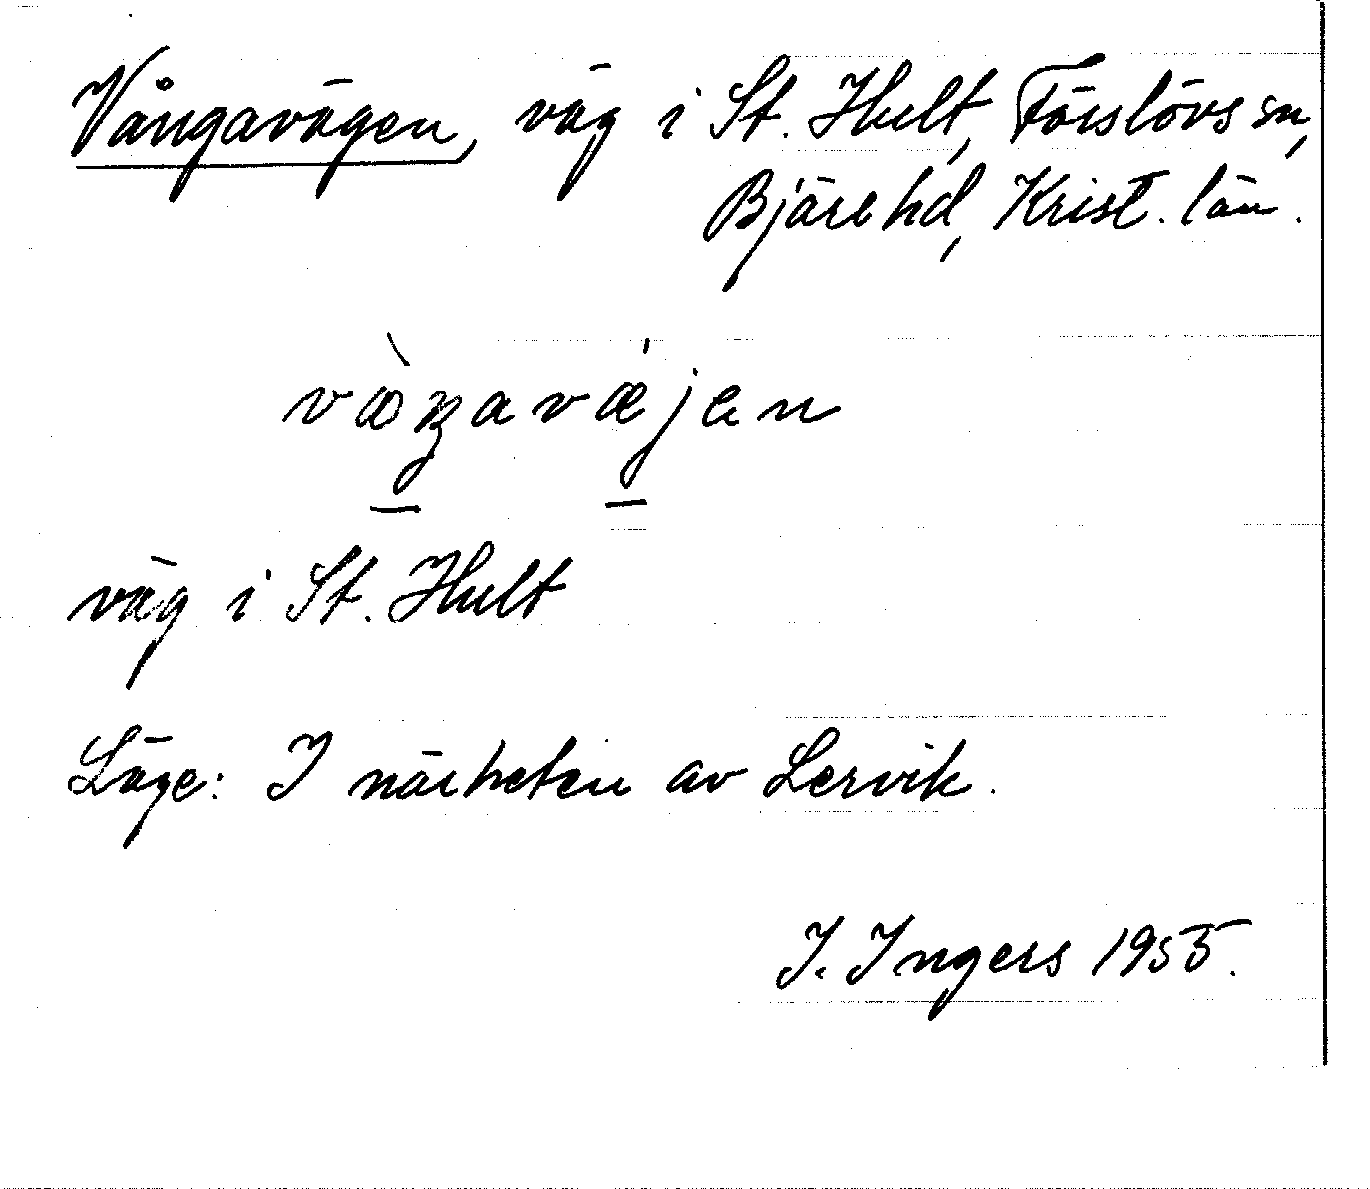 Vångavägen, väg i St. Hult, Förslövs sn,
Bjäre hd, Krist. län.
väg i St. Hult
Läge: I närheten av Lervik.
I. Ingers 1955.